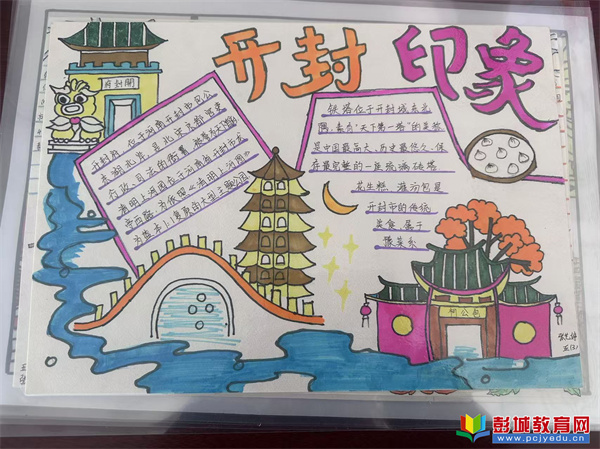 开封印象
府封開
开封府 位于河南开封市包公
东湖北岸 是北宋京都官吏
行政、司法的衙署 被誉为天下首府
清明上河园在开封龙亭开封历史
为蓝本 1:1复原的大型主题公园
铁塔位于开封城东北
隅，素有“天下第一塔”的美称
是中国最高大、历史最悠久、保
存最完整的一座琉璃砖塔
花生糕、灌汤包是
开封市的传统
美食，属于
豫菜系
祠公包
五(3)
彭城教育网
www.pcjyedu.cn